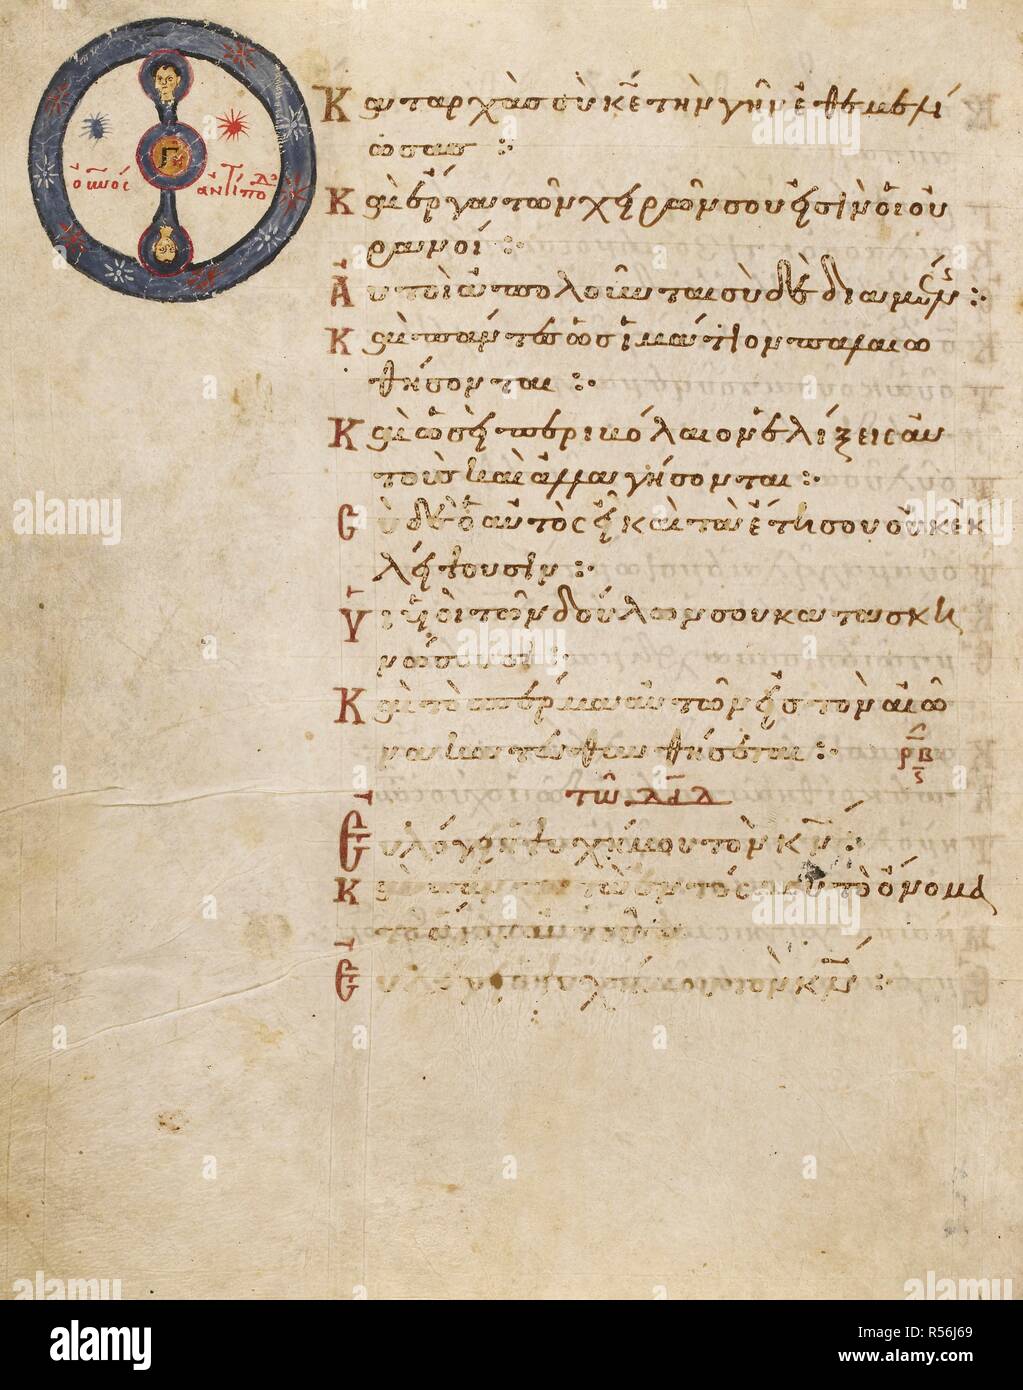 ὁ οὐνός
ἀντίποδ
Γῆ
Κατ ἀρχὰς σὺ κε τὴν γῆν ἐθεμελί
ωσας :
Καὶ ἔργα τῶν χειρῶν σου εἰσὶν οἱ οὐ
ρανοί :
Αὐτοὶ ἀπολοῦνται σὺ δὲ διαμένεις :
Καὶ πάντες ὡς ἱμάτιον παλαιω
θήσονται :
Καὶ ὡσεὶ περιβόλαιον ἑλίξεις αὐ
τοὺς καὶ ἀλλαγήσονται :
Σὺ δὲ ὁ αὐτὸς εἶ καὶ τὰ ἔτη σου οὐκ ἐκ
λείψουσιν :
Υἱοὶ τῶν δούλων σου κατασκη
νώσουσι :
Καὶ τὸ σπέρμα αὐτῶν εἰς τὸν αἰῶ
να κατευθυνθήσεται :
ρβ
τῶ δαδ
Εὐλόγει ἡ ψυχή μου τὸν κν :
Καὶ πάντα τὰ ἐντός μου τὸ ὄνομα
τὸ ἅγιον αὐτοῦ
Εὐλόγει ἡ ψυχή μου τὸν κν :
alamy
alamy
Image ID: R56J69
www.alamy.com